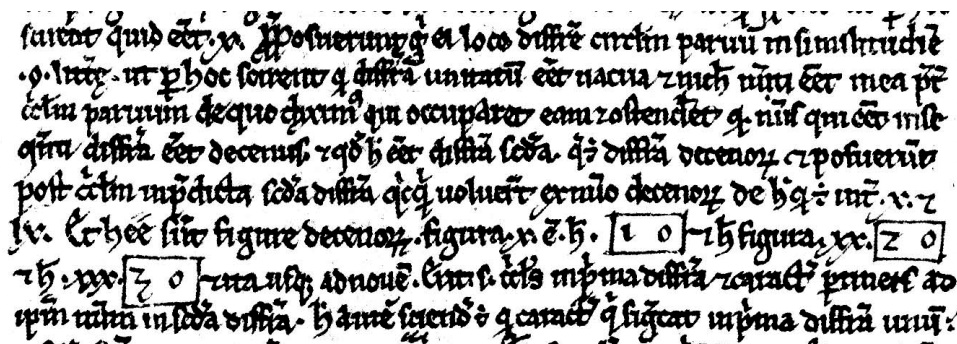 scirent quid eēt .x. Posuerunt g̊ ei loco diffrē circłm paruū in similitudinē
.o. littę̄. ut p hoc scirent q̄ diffrā unitatū eēt uacua ⁊ nich̄ nūi eēt in ea p̄t
c̄cłm paruum de quo diximꝰ qui occuparet eam ⁊ ostend̄et q̄ nūs qui eēt in se
q̄nti diffrā eēt decenus. ⁊ qd̄ h̄ eēt diffrā scd̄a. q̄ ē diffrā decenoꝝ ⁊ posuerūt
post c̄cłm in p̄dicta scd̄a diffrā q̄cq̄d uoluer̄t ex nūo decenoꝝ de h̄ q̄ st̄ int̄ .x. ⁊
lx. Et hee sūt figure decenoꝝ. figura .x. ē. h̄. 10 ⁊ h̄ figura .xx. 20
⁊ h̄ .xxx. 30 ⁊ ita usq; ad nouē. Erit .s. c̄cłs in p̄ma diffrā ⁊ caract̄ ptinens ad
ipm̄ nūm in scd̄a diffrā. h̄ autē sciend̄ ē q̄ caract̄ q̄ sigf̄cat in p̄ma diffrā unū